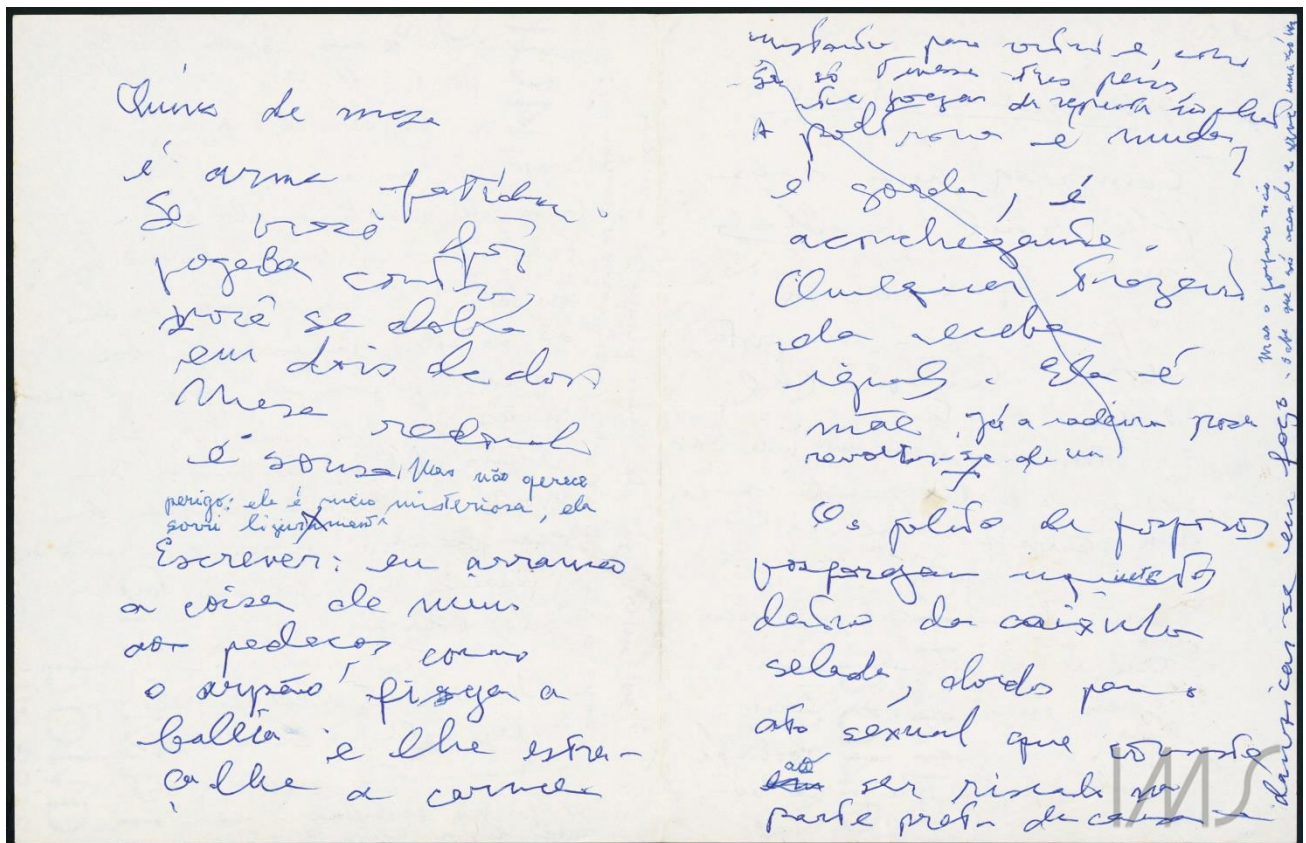 Quina de mesa
é arma fatídica.
Se você for
jogada contra,
você se dobra
em dois de dor
Mesa redonda
é sonsa, Mas não oferece
perigo: ela é meio misteriosa, ela
sorri ligeiramente
Escrever: eu arranco
as coisas de mim
aos pedaços como
o arpão fisga a
baleia e lhe estra-
çalha a carne
para outra e, como
se só tivesse três
de repente
A poltrona é muda,
é gorda, é
aconchegante.
Qualquer traseiro
ela recebe
igual. Ela é
mãe. Já a cadeira
revoltar-se de
Os palitos de fósforos
inquietos
dentro da caixinha
selada, doidos para o
ato sexual que consiste
ao ser riscado na
parte preta da caixa e
danificar-se em fogo.
Mas o fósforo não
sabe que só acende e serve uma só vez
IMS